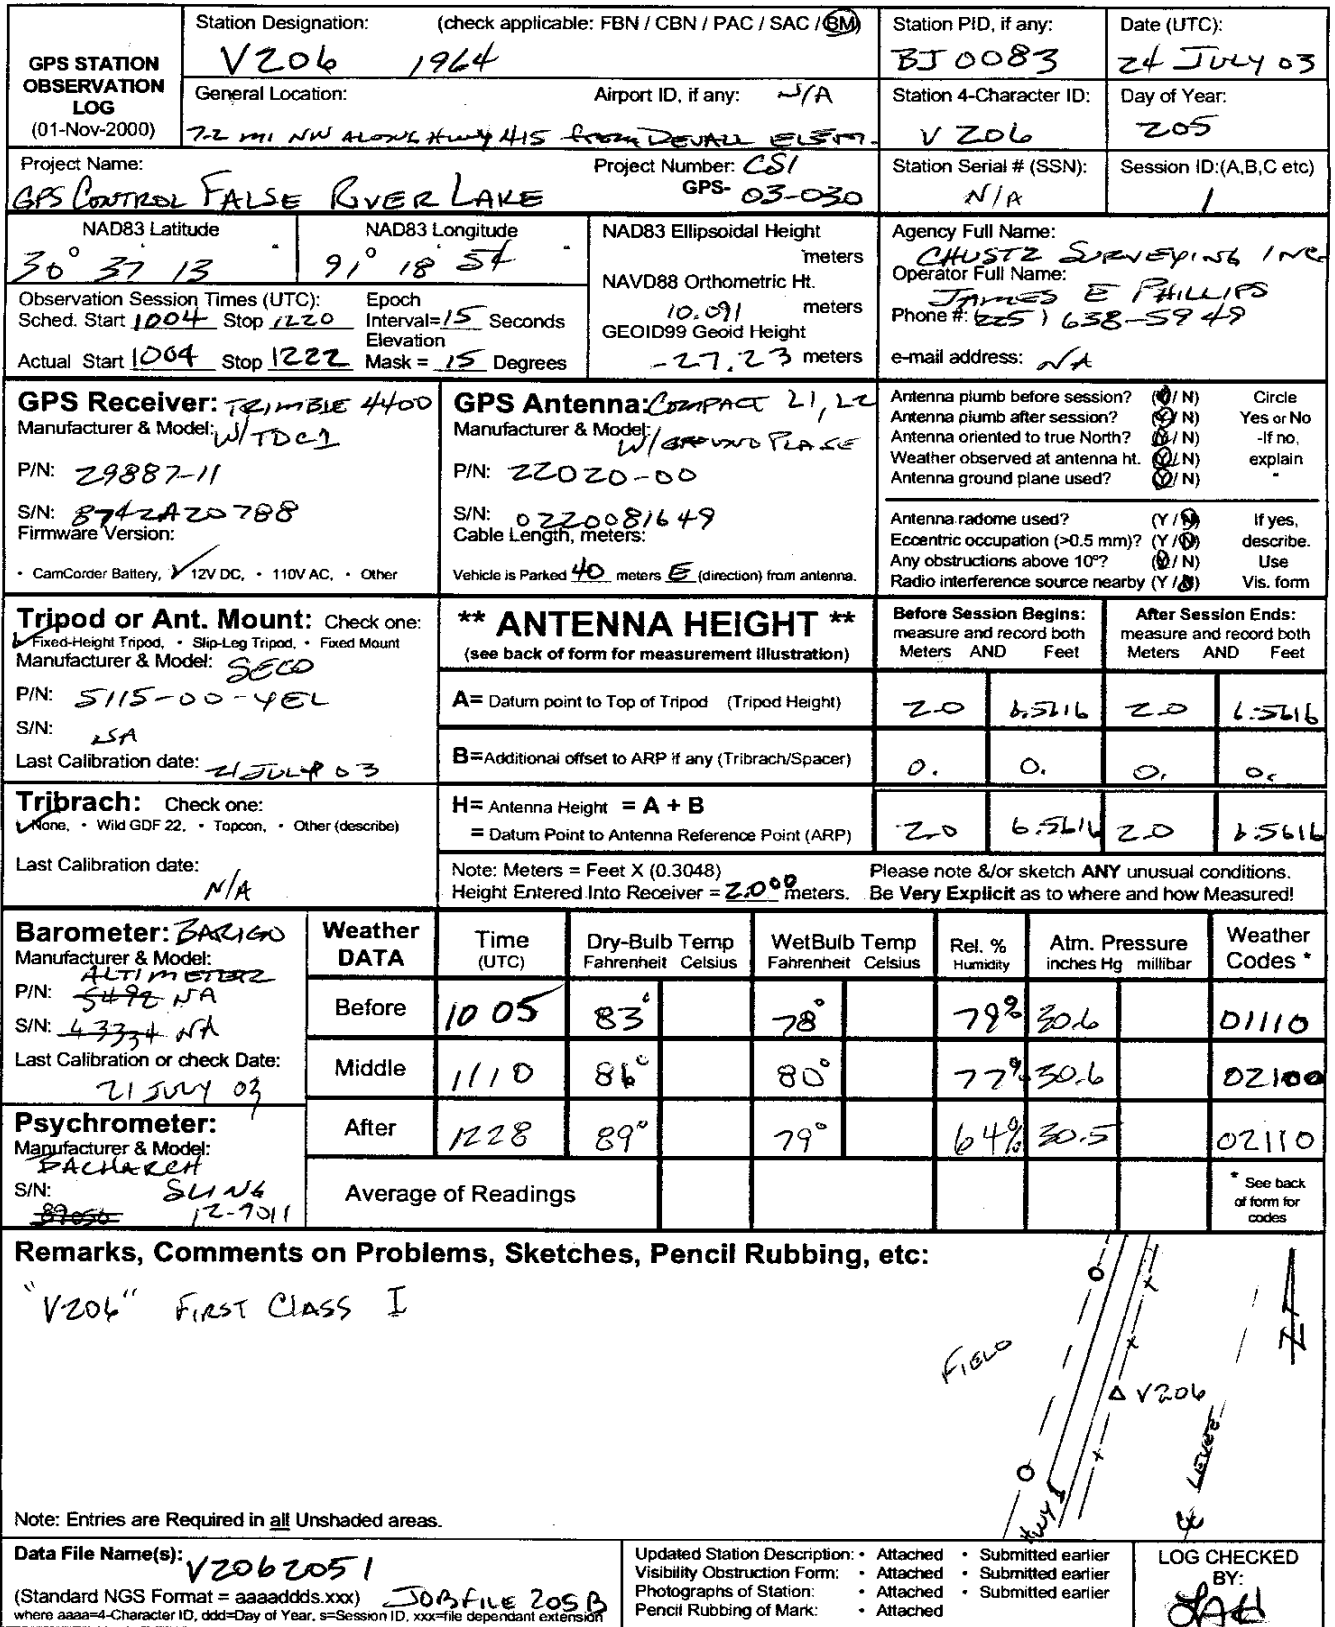 GPS STATION OBSERVATION LOG
(01-Nov-2000)
Station Designation: (check applicable: FBN / CBN / PAC / SAC / BM)
V206 1964
Station PID, if any:
BJ0083
Date (UTC):
24 JULY 03
General Location: Airport ID, if any: N/A
7.2 mi NW ALONG Hwy 415 from DEVALL ELEM.
Station 4-Character ID:
V206
Day of Year:
205
Project Name:
GPS CONTROL FALSE RIVER LAKE
Project Number: CSI
GPS- 03-030
Station Serial # (SSN):
N/A
Session ID:(A,B,C etc)
1
NAD83 Latitude
30° 37 ' 13 "
NAD83 Longitude
91° 18 ' 54 "
NAD83 Ellipsoidal Height
meters
NAVD88 Orthometric Ht.
10.091 meters
GEOID99 Geoid Height
-27.23 meters
Agency Full Name:
CHUSTZ SURVEYING INC
Operator Full Name:
JAMES E PHILLIPS
Phone #: (225) 638-5949
e-mail address: NA
Observation Session Times (UTC):
Sched. Start 1004 Stop 1220
Actual Start 1004 Stop 1222
Epoch
Interval= 15 Seconds
Elevation
Mask = 15 Degrees
GPS Receiver: TRIMBLE 4400
Manufacturer & Model: W/TDC1
P/N: 29887-11
S/N: 8742A20788
Firmware Version:
• CamCorder Battery, ✓ 12V DC, • 110V AC, • Other
GPS Antenna: COMPACT L1, L2
Manufacturer & Model: W/GROUND PLANE
P/N: 22020-00
S/N: 0220081649
Cable Length, meters:
Vehicle is Parked 40 meters E (direction) from antenna.
Antenna plumb before session? (Y / N) Circle
Antenna plumb after session? (Y / N) Yes or No
Antenna oriented to true North? (Y / N) -If no,
Weather observed at antenna ht. (Y / N) explain
Antenna ground plane used? (Y / N) "
Antenna radome used? (Y / N) If yes,
Eccentric occupation (>0.5 mm)? (Y / N) describe.
Any obstructions above 10°? (Y / N) Use
Radio interference source nearby (Y / N) Vis. form
Tripod or Ant. Mount: Check one:
✓ Fixed-Height Tripod, • Slip-Leg Tripod, • Fixed Mount
Manufacturer & Model: SECO
P/N: 5115-00-YEL
S/N: NA
Last Calibration date: 21 JULY 03
Tribrach: Check one:
✓ None, • Wild GDF 22, • Topcon, • Other (describe)
Last Calibration date:
N/A
** ANTENNA HEIGHT **
(see back of form for measurement illustration)
Before Session Begins:
measure and record both
Meters AND Feet
After Session Ends:
measure and record both
Meters AND Feet
A= Datum point to Top of Tripod (Tripod Height) 2.0 6.5616 2.0 6.5616
B=Additional offset to ARP if any (Tribrach/Spacer) 0. 0. 0. 0.
H= Antenna Height = A + B
= Datum Point to Antenna Reference Point (ARP) 2.0 6.5616 2.0 6.5616
Note: Meters = Feet X (0.3048)
Height Entered Into Receiver = 2.000 meters.
Please note &/or sketch ANY unusual conditions.
Be Very Explicit as to where and how Measured!
Barometer: BARIGO
Manufacturer & Model:
ALTIMETER
P/N: 5492 NA
S/N: 43334 NA
Last Calibration or check Date:
21 JULY 03
Psychrometer:
Manufacturer & Model:
BACHARCH
SLING
S/N: 12-7011
Weather DATA
Time (UTC)
Dry-Bulb Temp
Fahrenheit Celsius
WetBulb Temp
Fahrenheit Celsius
Rel. % Humidity
Atm. Pressure
inches Hg millibar
Weather Codes *
Before 1005 83° 78° 79% 30.6 01110
Middle 1110 86° 80° 77% 30.6 02100
After 1228 89° 79° 64% 30.5 02110
Average of Readings
* See back of form for codes
Remarks, Comments on Problems, Sketches, Pencil Rubbing, etc:
"V206" FIRST CLASS I
FIELD
V206
LEVEE
HWY 1
N
Note: Entries are Required in all Unshaded areas.
Data File Name(s): V2062051
(Standard NGS Format = aaaaddds.xxx) JOBFILE 205B
where aaaa=4-Character ID, ddd=Day of Year, s=Session ID, xxx=file dependant extension
Updated Station Description: • Attached • Submitted earlier
Visibility Obstruction Form: • Attached • Submitted earlier
Photographs of Station: • Attached • Submitted earlier
Pencil Rubbing of Mark: • Attached
LOG CHECKED BY: